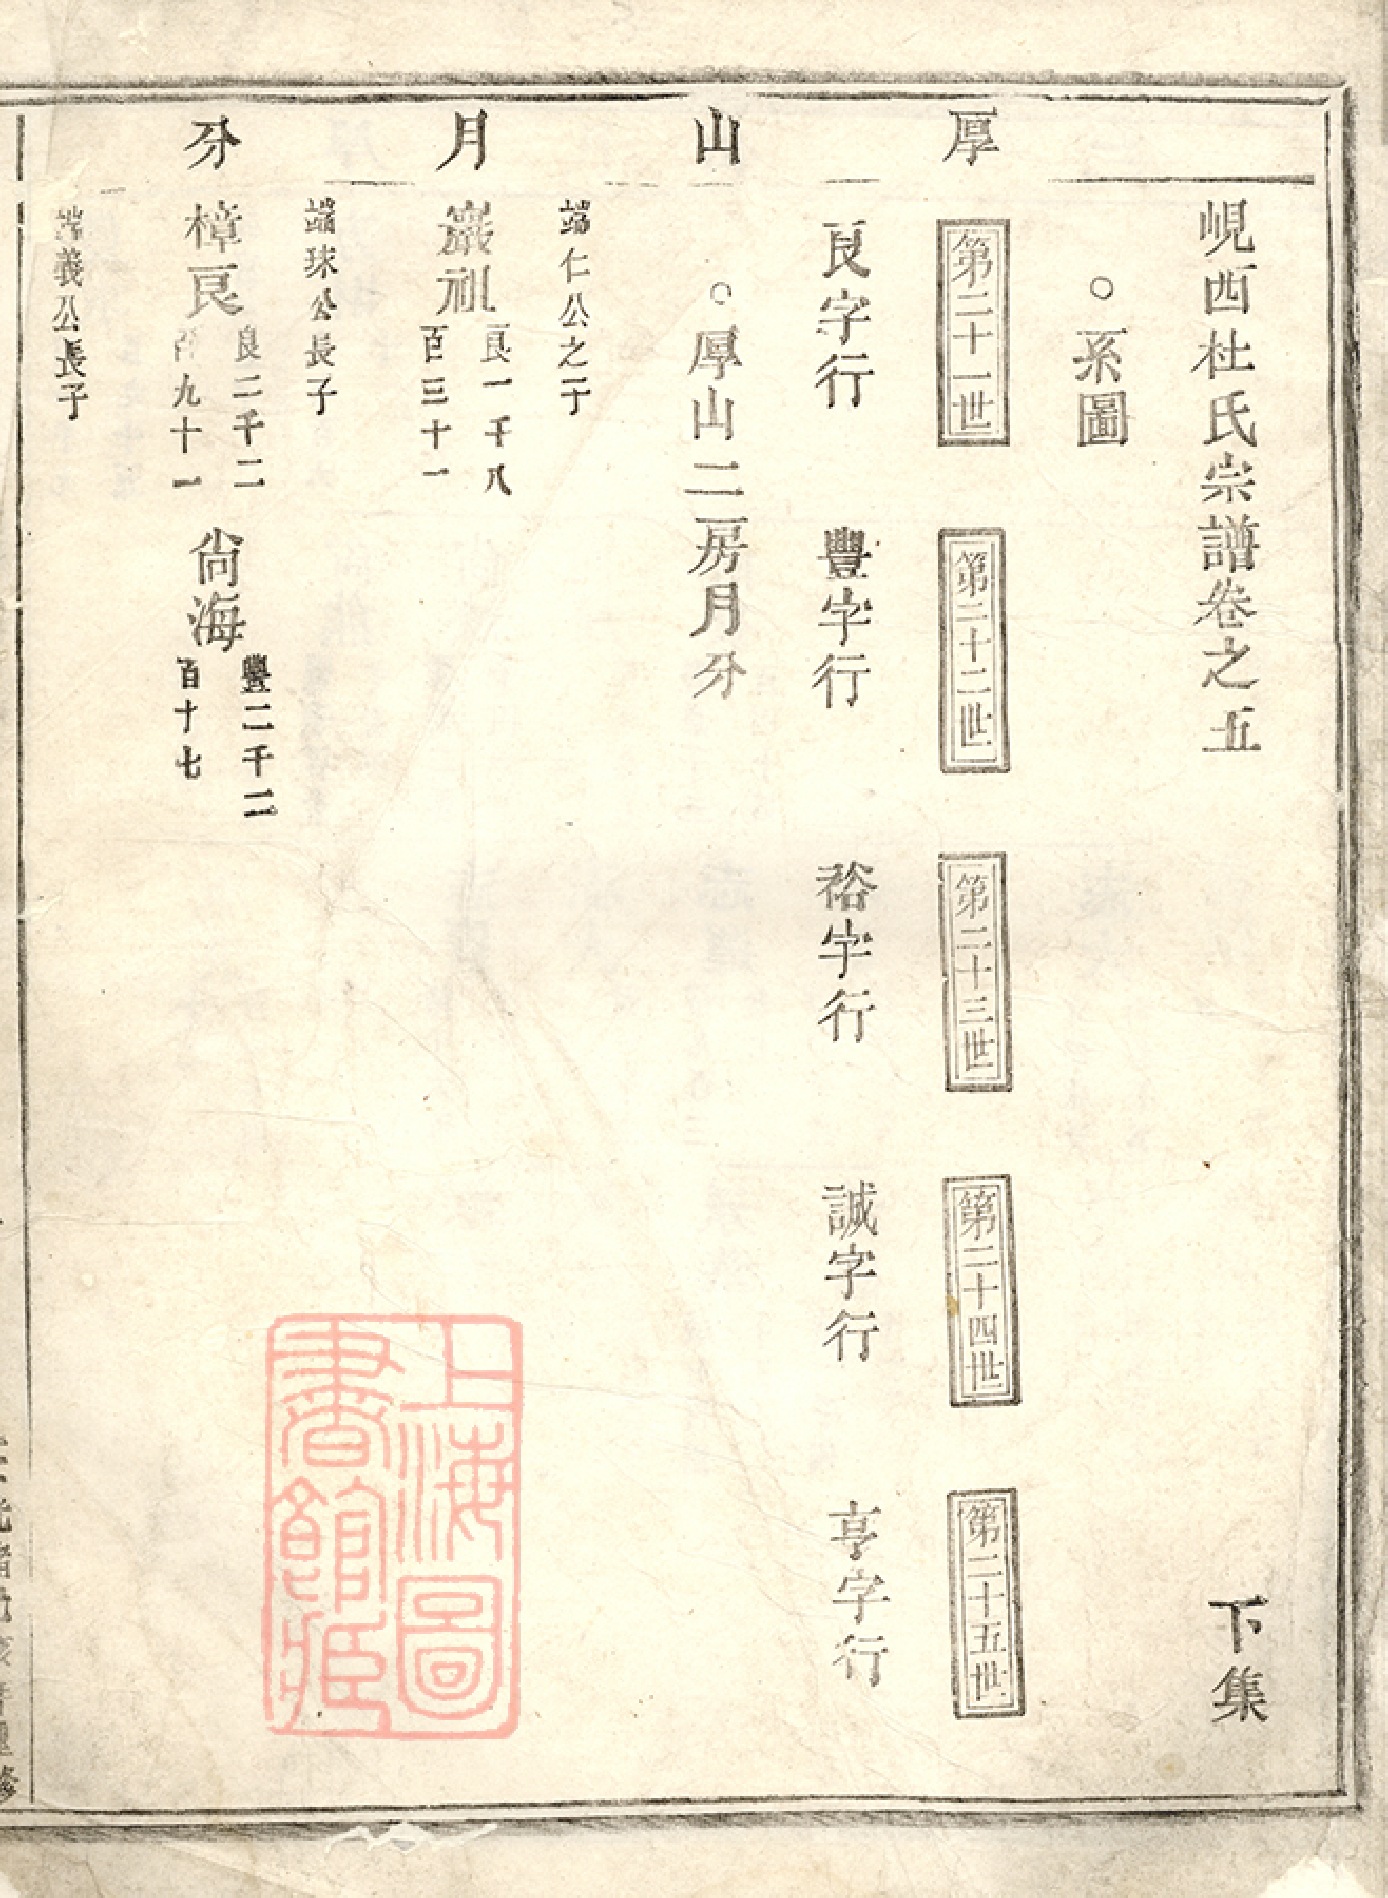 峴西杜氏宗譜卷之五 下集
○系圖
厚
第二十一世 第二十二世 第二十三世 第二十四世 第二十五世
良字行 豐字行 裕字行 誠字行 亨字行
山
○厚山二房月分
端仁公之子
月
巖祖 良一千八百三十一
端球公長子
分
樟良 良二千二百九十一 尙海 豐二千二百十七
端義公長子
上海圖書館藏